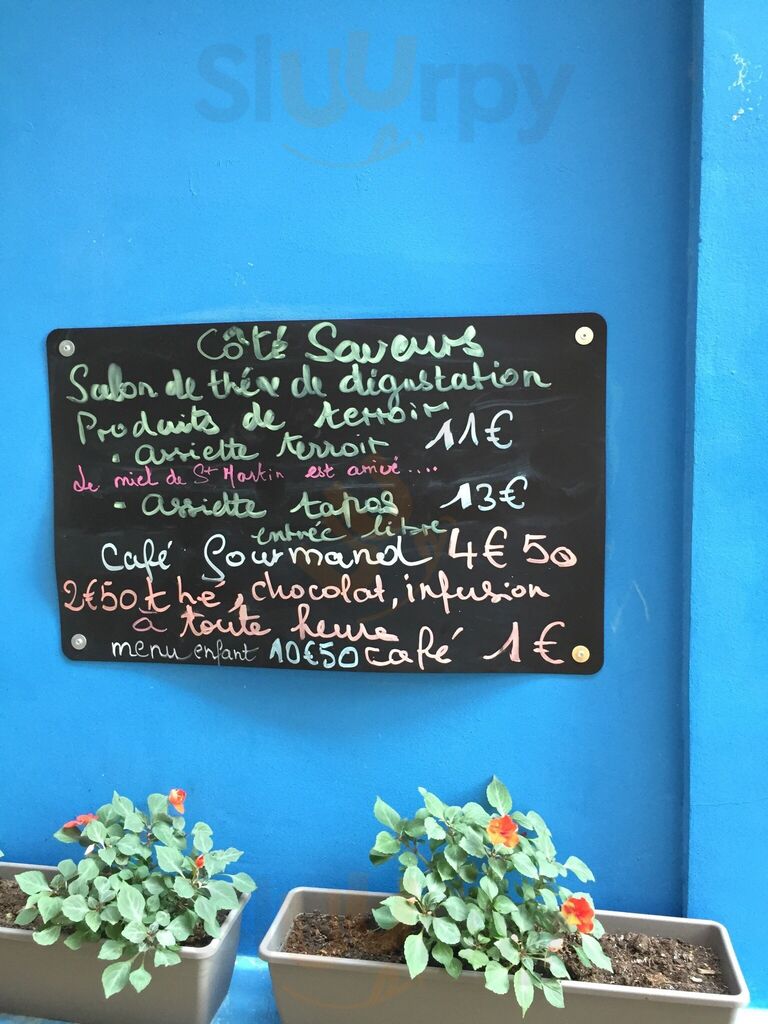 Sluurpy
Côté Saveurs
Salon de thé & de dégustation
Produits de terroir
• assiette terroir 11€
Le miel de St Martin est arrivé....
• assiette tapas 13€
entrée libre
Café Gourmand 4€50
2€50 thé, chocolat, infusion
à toute heure
menu enfant 10€50 café 1€